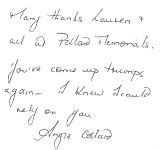 Many thanks Lauren &
all at Pollard Memorials.
You've come up trumps
again - I knew I could
rely on you
Angie Collard